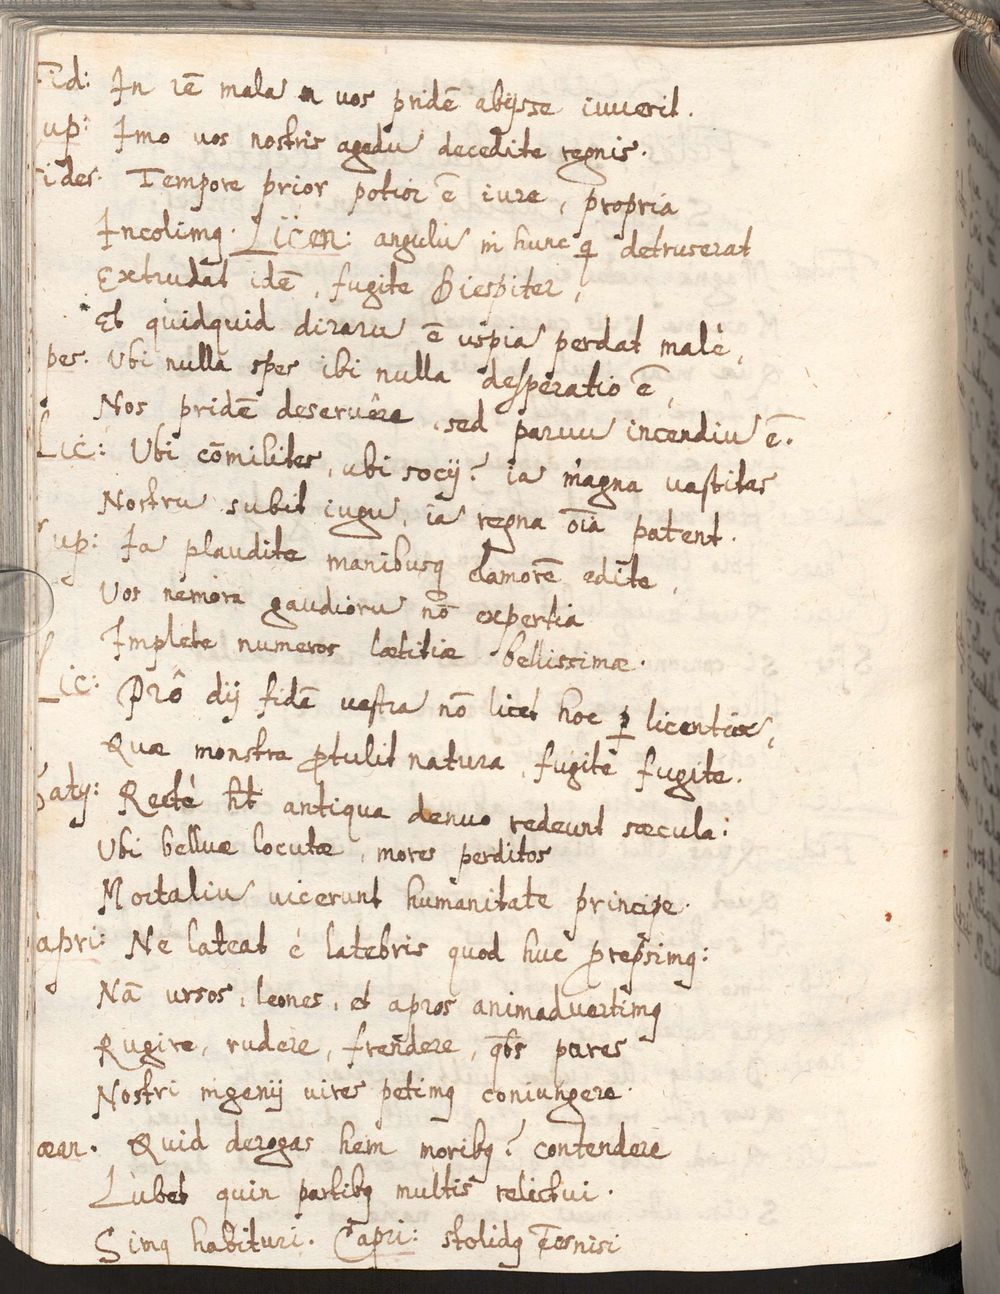 Fid: In rē mala vos pridē abijsse iuuerit.
up: Imo vos nostris agedū decedite regnis.
ides. Tempore prior potior ē iure, propria
Incolimq. Licen: angulū in hunc q̄ detruserat
Extrudat idē, fugite Diespiter,
Et quidquid dirarū ē uspiā perdat malè,
pes. Ubi nulla spes ibi nulla desperatio ē,
Nos pridē deseruêre, sed paruū incendiū ē.
Lic: Ubi cōmilites, ubi socij? iā magna uastitas
Nostrū subit iugū, iā regna oīa patent.
up: Iā plaudite manibusq clamorē edite,
Vos nemora gaudiorū nō expertia
Implete numeros lætitiæ bellissimæ.
Lic: Prô dij fidē uestrā nō licet hoc ꝑ licentiā,
Quæ monstra ꝓtulit natura, fugite fugite.
Saty: Recté ht antiqua denuo redeunt sæcula:
Ubi belluæ locutæ, mores perditos
Mortaliū uicerunt humanitate principe.
apri: Ne lateat é latebris quod huc ꝓrepsimq:
Nā ursos, leones, et apros animaduertimq
Rugire, rudere, frendere, qbs pares
Nostri ingenij uires petimq coniungere.
æan. Quid derogas hem moribq? contendere
Lubet quin partibq multis relictui.
Simq habituri. Capri: stolidq